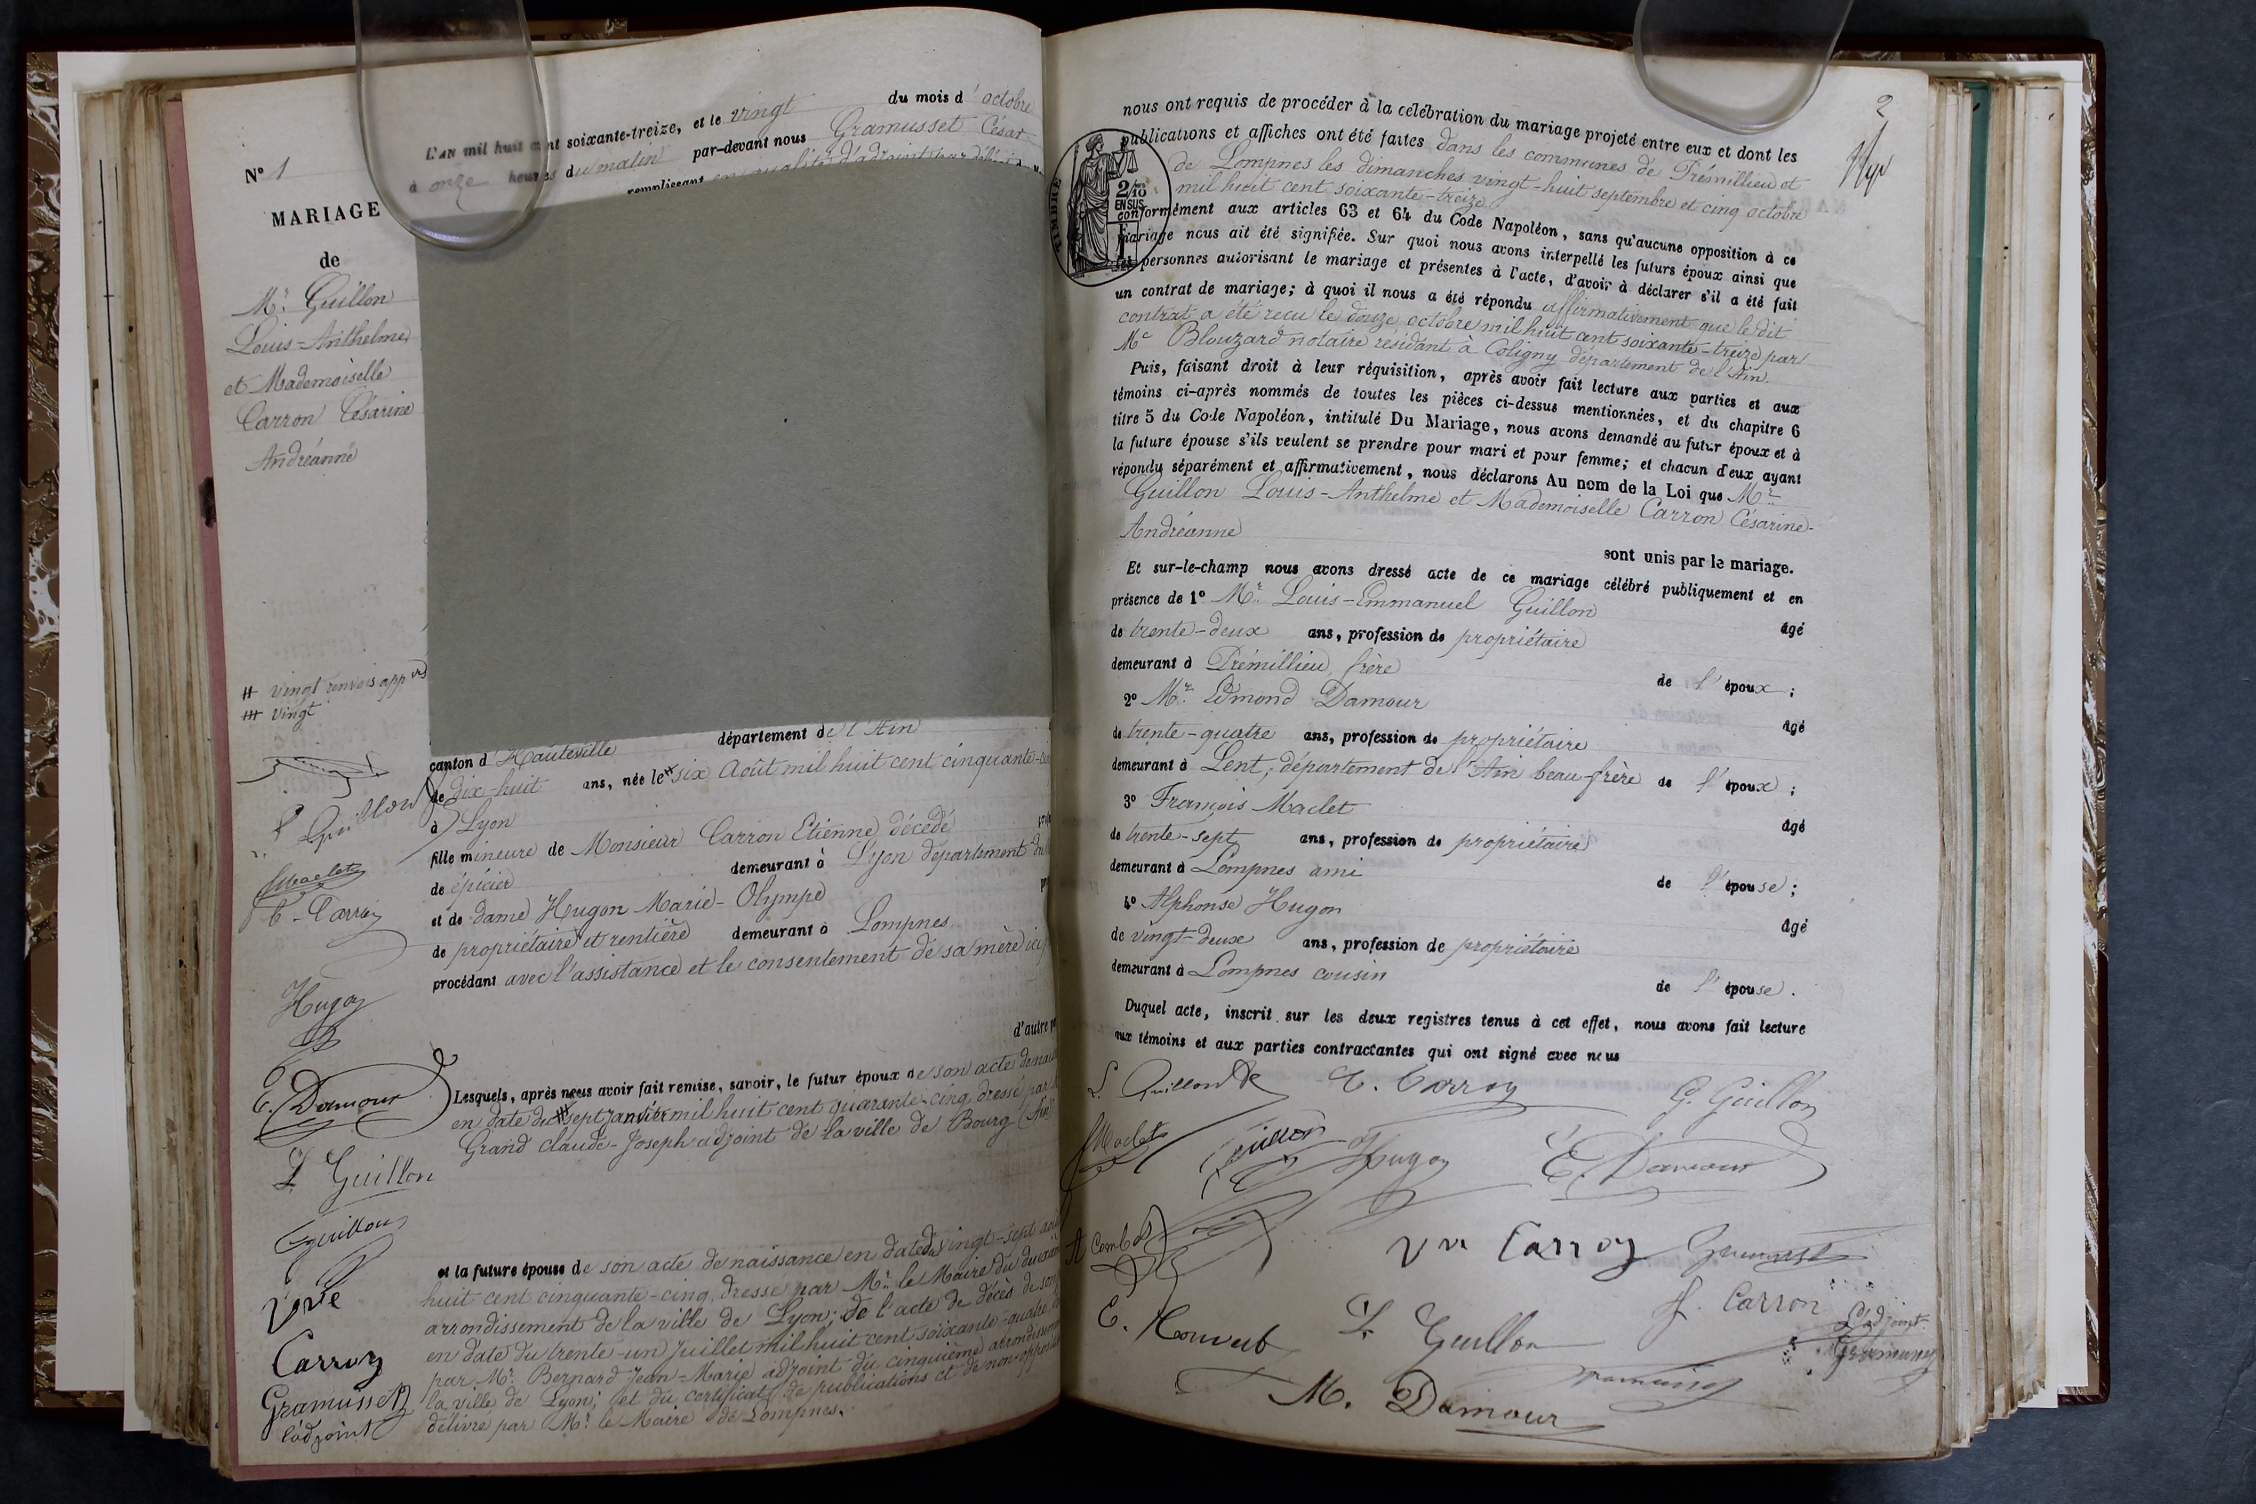 N° 1
MARIAGE
de
Mr Guillon
Louis-Anthelme
et Mademoiselle
Carron Césarine
Andréanne
H vingt renvois app
HH vingt
L Guillon
Maclet
C. Carron
Hugon
E. Damour
L. Guillon
Guillon
Vve
Carron
Gramusset
l'adjoint
L'AN mil huit cent soixante-treize, et le vingt du mois d'octobre
à onze heures du matin par-devant nous Gramusset César
remplissant en qualité d'adjoint par
canton d'Hauteville département de l'Ain
de dix-huit ans, née le H six Août mil huit cent cinquante-
à Lyon
fille mineure de Monsieur Carron Etienne décédé
de épicier demeurant à Lyon département du
et de dame Hugon Marie-Olympe
de propriétaire et rentière demeurant à Lompnes
procédant avec l'assistance et le consentement de sa mère ici
d'autre
Lesquels, après nous avoir fait remise, savoir, le futur époux de son acte de
en date du HH sept janvier mil huit cent quarante-cinq dressé par
Grand claude-Joseph adjoint de la ville de Bourg (Ain)
et la future épouse de son acte de naissance en date du vingt-sept
huit cent cinquante-cinq, dressé par Mr le Maire du
arrondissement de la ville de Lyon; de l'acte de décès de son
en date du trente-un juillet mil huit cent soixante-quatre
par Mr Bernard Jean-Marie adjoint du cinquième
la ville de Lyon; et du certificat de publications et de non-
délivré par Mr le Maire de Lompnes.
2
nous ont requis de procéder à la célébration du mariage projeté entre eux et dont les
publications et affiches ont été faites dans les communes de Prémillieu et
de Lompnes les dimanches vingt-huit septembre et cinq octobre
mil huit cent soixante-treize
TIMBRE
2/10
EN SUS
conformément aux articles 63 et 64 du Code Napoléon, sans qu'aucune opposition à ce
mariage nous ait été signifiée. Sur quoi nous avons interpellé les futurs époux ainsi que
les personnes autorisant le mariage et présentes à l'acte, d'avoir à déclarer s'il a été fait
un contrat de mariage; à quoi il nous a été répondu affirmativement que le dit
contrat a été reçu le douze octobre mil huit cent soixante-treize par
Me Blouzard notaire résidant à Coligny département de l'Ain.
Puis, faisant droit à leur réquisition, après avoir fait lecture aux parties et aux
témoins ci-après nommés de toutes les pièces ci-dessus mentionnées, et du chapitre 6
titre 5 du Code Napoléon, intitulé Du Mariage, nous avons demandé au futur époux et à
la future épouse s'ils veulent se prendre pour mari et pour femme; et chacun d'eux ayant
répondu séparément et affirmativement, nous déclarons Au nom de la Loi que Mr
Guillon Louis-Anthelme et Mademoiselle Carron Césarine-
Andréanne
sont unis par le mariage.
Et sur-le-champ nous avons dressé acte de ce mariage célébré publiquement et en
présence de 1° Mr Louis-Emmanuel Guillon
âgé
de trente-deux ans, profession de propriétaire
demeurant à Prémillieu, frère de l'époux;
2° Mr Edmond Damour
âgé
de trente-quatre ans, profession de propriétaire
demeurant à Lent, département de l'Ain beau-frère de l'époux;
3° François Maclet
âgé
de trente-sept ans, profession de propriétaire
demeurant à Lompnes ami de l'épouse;
4° Alphonse Hugon
âgé
de vingt-deux ans, profession de propriétaire
demeurant à Lompnes cousin de l'épouse.
Duquel acte, inscrit sur les deux registres tenus à cet effet, nous avons fait lecture
aux témoins et aux parties contractantes qui ont signé avec nous
L. Guillon C. Carron G. Guillon
Maclet Guillon Hugon E. Damour
Vve Carron Gramusset
L. Guillon J. Carron l'adjoint
Gramusset
M. Damour